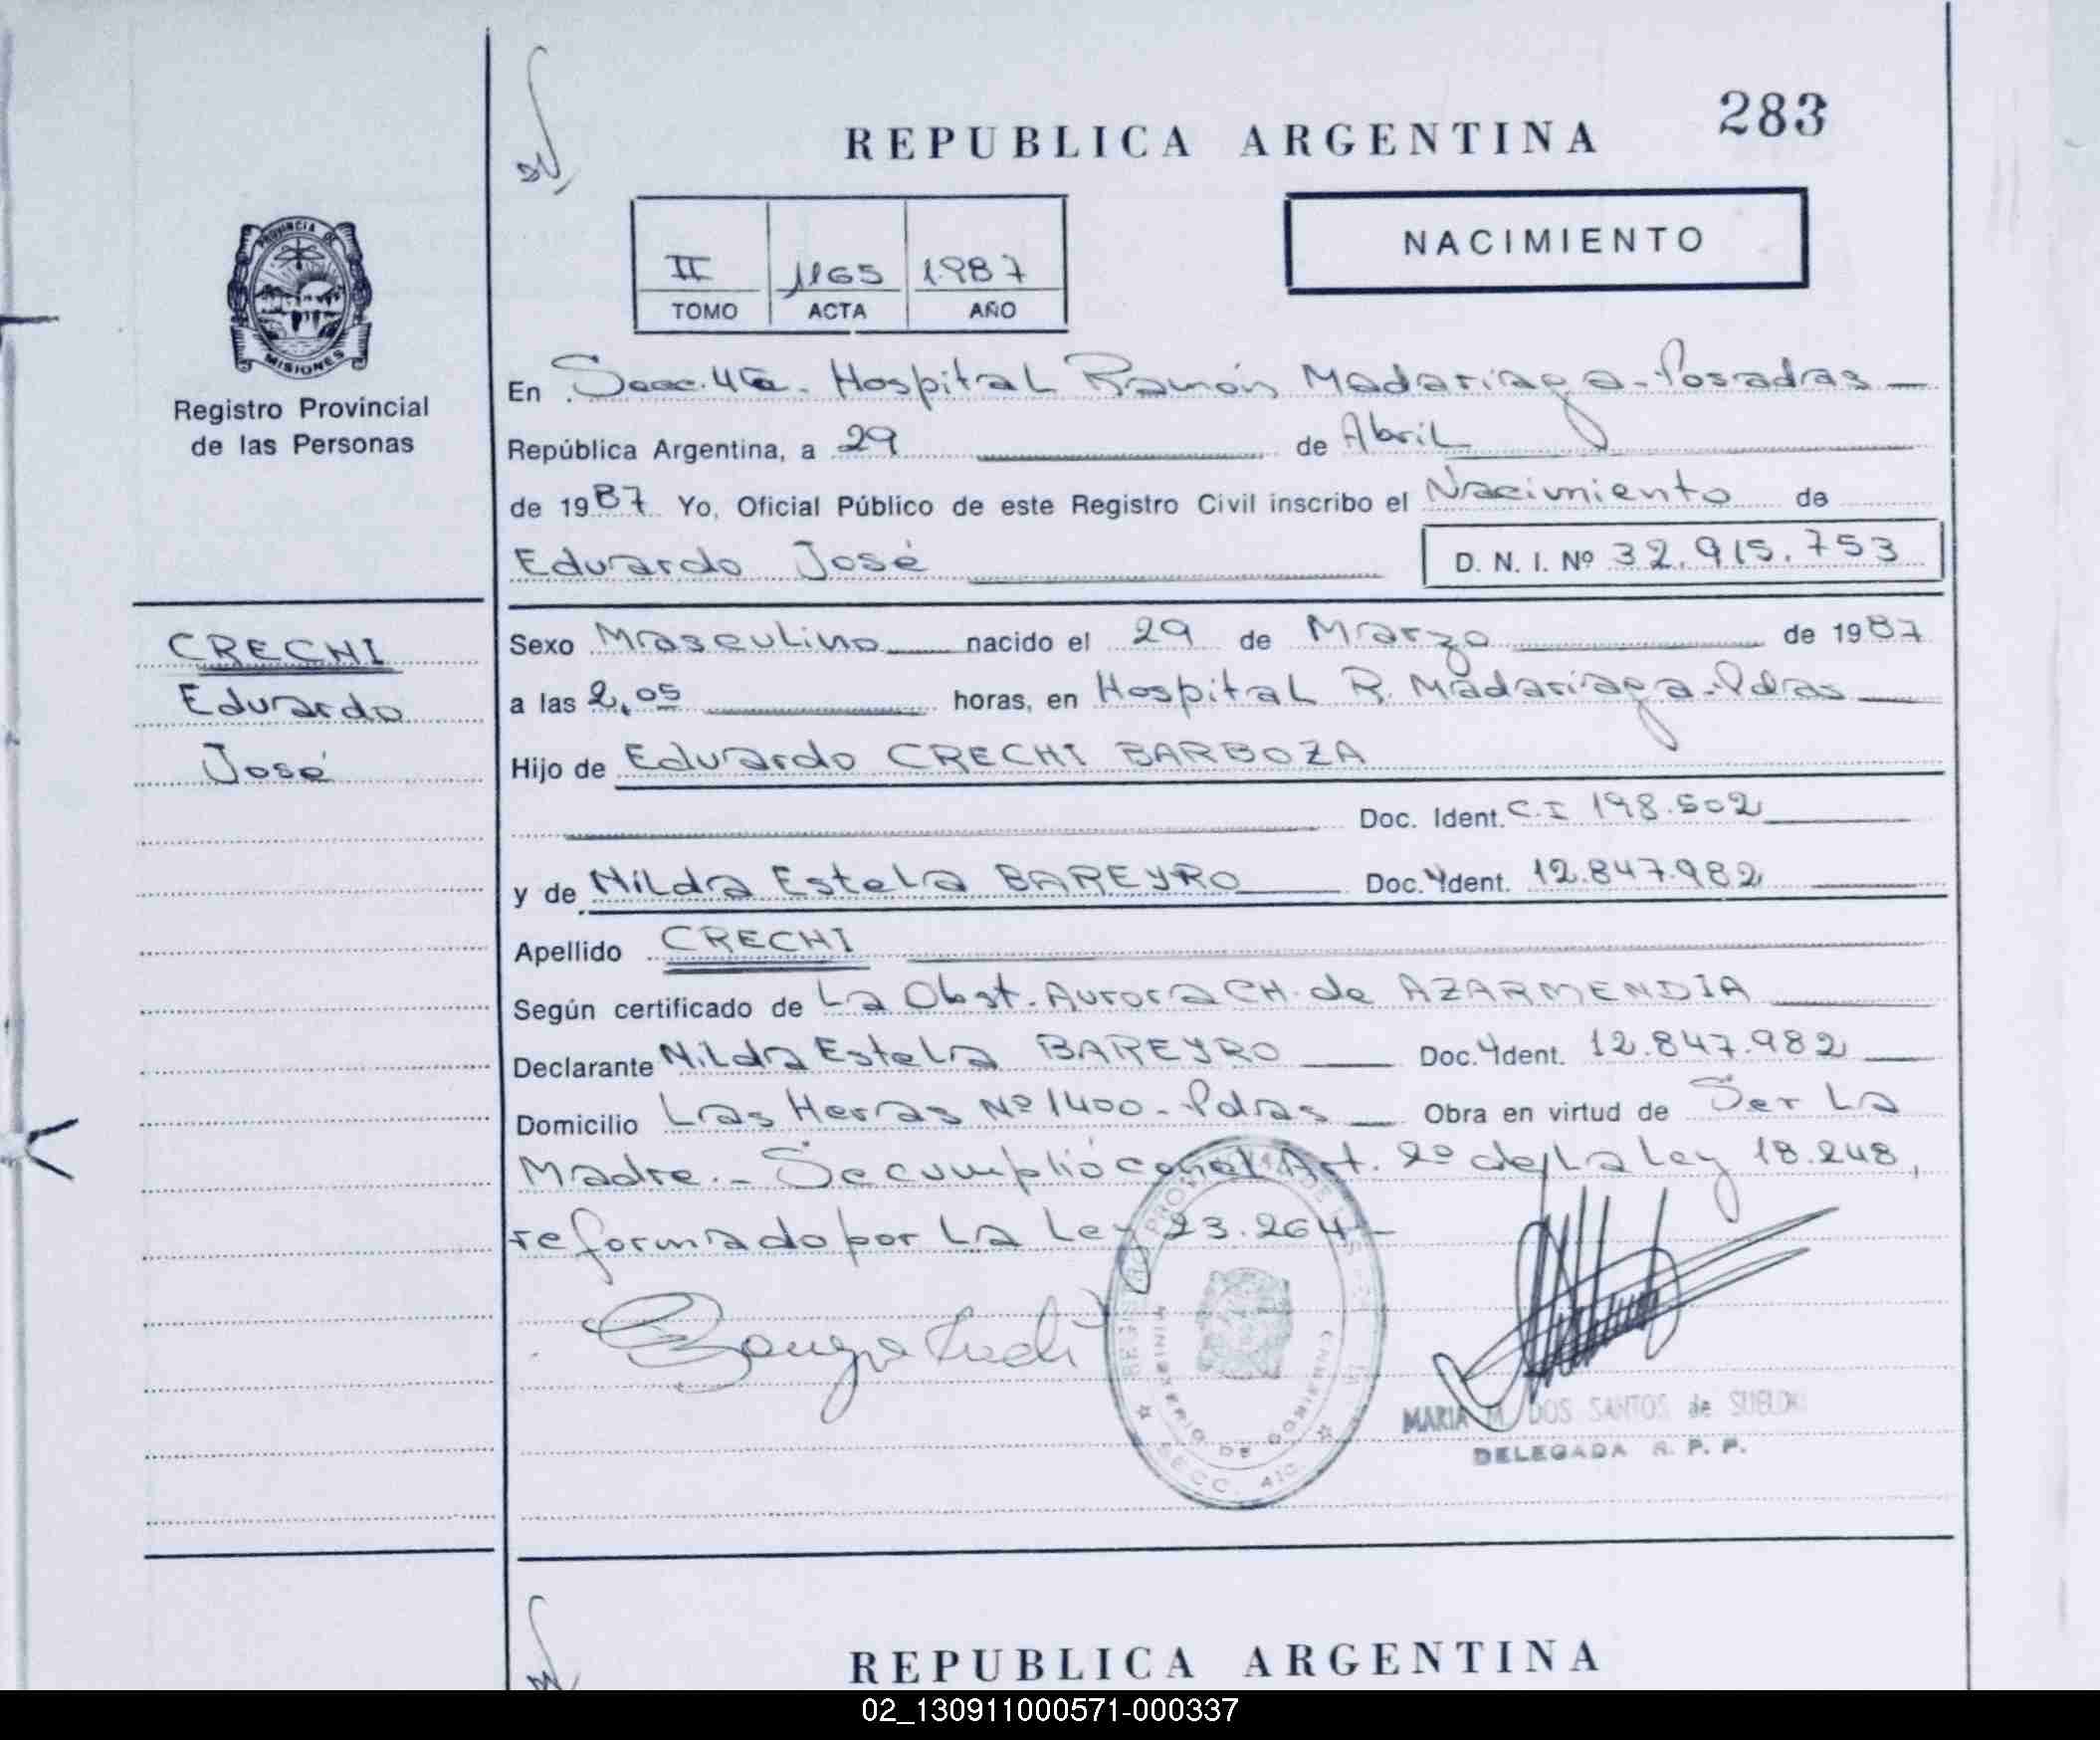 283
REPUBLICA ARGENTINA
NACIMIENTO
II 1165 1987
TOMO ACTA AÑO
PROVINCIA DE
MISIONES
Registro Provincial
de las Personas
En Secc. 4ta. Hospital Ramón Madariaga - Posadas
República Argentina, a 29 de Abril
de 1987 Yo, Oficial Público de este Registro Civil inscribo el Nacimiento de
Eduardo José D. N. I. Nº 32.915.753
CRECHI
Eduardo
José
Sexo Masculino nacido el 29 de Marzo de 1987
a las 2,05 horas, en Hospital R. Madariaga - Pdas
Hijo de Eduardo CRECHI BARBOZA
Doc. Ident. C.I 198.502
y de Nilda Estela BAREYRO Doc. Ydent. 12.847.982
Apellido CRECHI
Según certificado de La Obst. Aurora CH. de AZARMENDIA
Declarante Nilda Estela BAREYRO Doc. Ydent. 12.847.982
Domicilio Las Heras Nº 1400 - Pdas Obra en virtud de Ser La
Madre.- Se cumplió con el Art. 2º de La Ley 18.248,
reformado por La Ley 23.264.-
MINISTERIO DE GOBIERNO
MARIA M. DOS SANTOS de
DELEGADA R. P. P.
REPUBLICA ARGENTINA
02_130911000571-000337